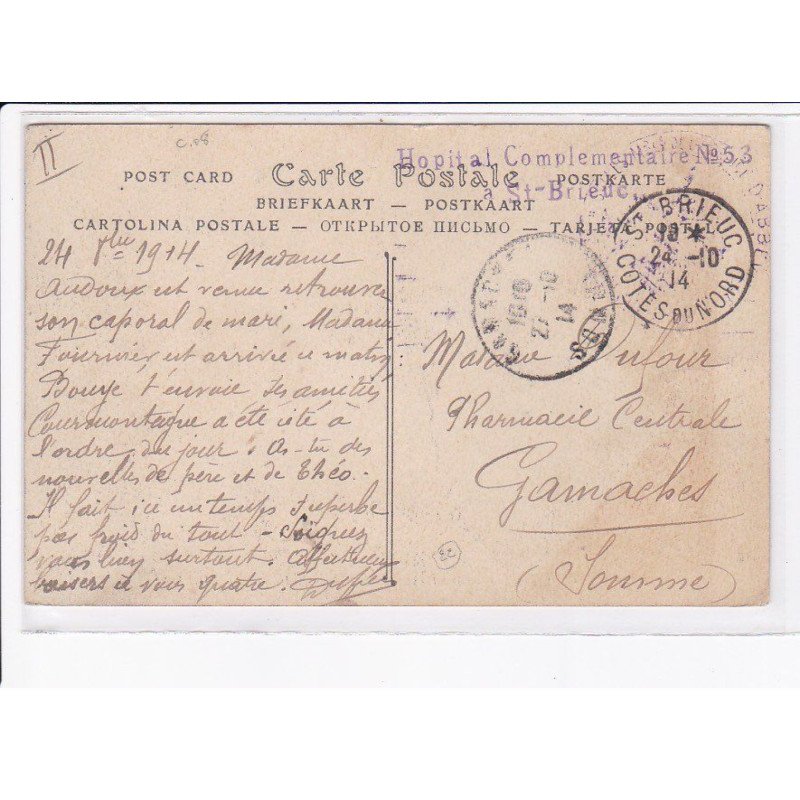 II
C.08
Hopital Complementaire No 53
à St-Brieuc
POST CARD Carte Postale POSTKARTE
BRIEFKAART — POSTKAART
CARTOLINA POSTALE — ОТКРЫТОЕ ПИСЬМО — TARJETA POSTAL
ST BRIEUC
24 -10
14
COTES DU NORD
GAMACHES
1810
27 -10
14
SOMME
24 8bre 1914. Madame
Audoux est venue retrouver
son caporal de mari, Madame
Fournier est arrivée ce matin
Bouye t'envoie ses amitiés
Courmontagne a été cité à
l'ordre du jour. As-tu des
nouvelles de père et de Théo.
Il fait ici un temps superbe
pas froid du tout - Soignez
vous bien surtout. Affectueux
baisers à vous quatre.
Madame Dufour
Pharmacie Centrale
Gamaches
(Somme)